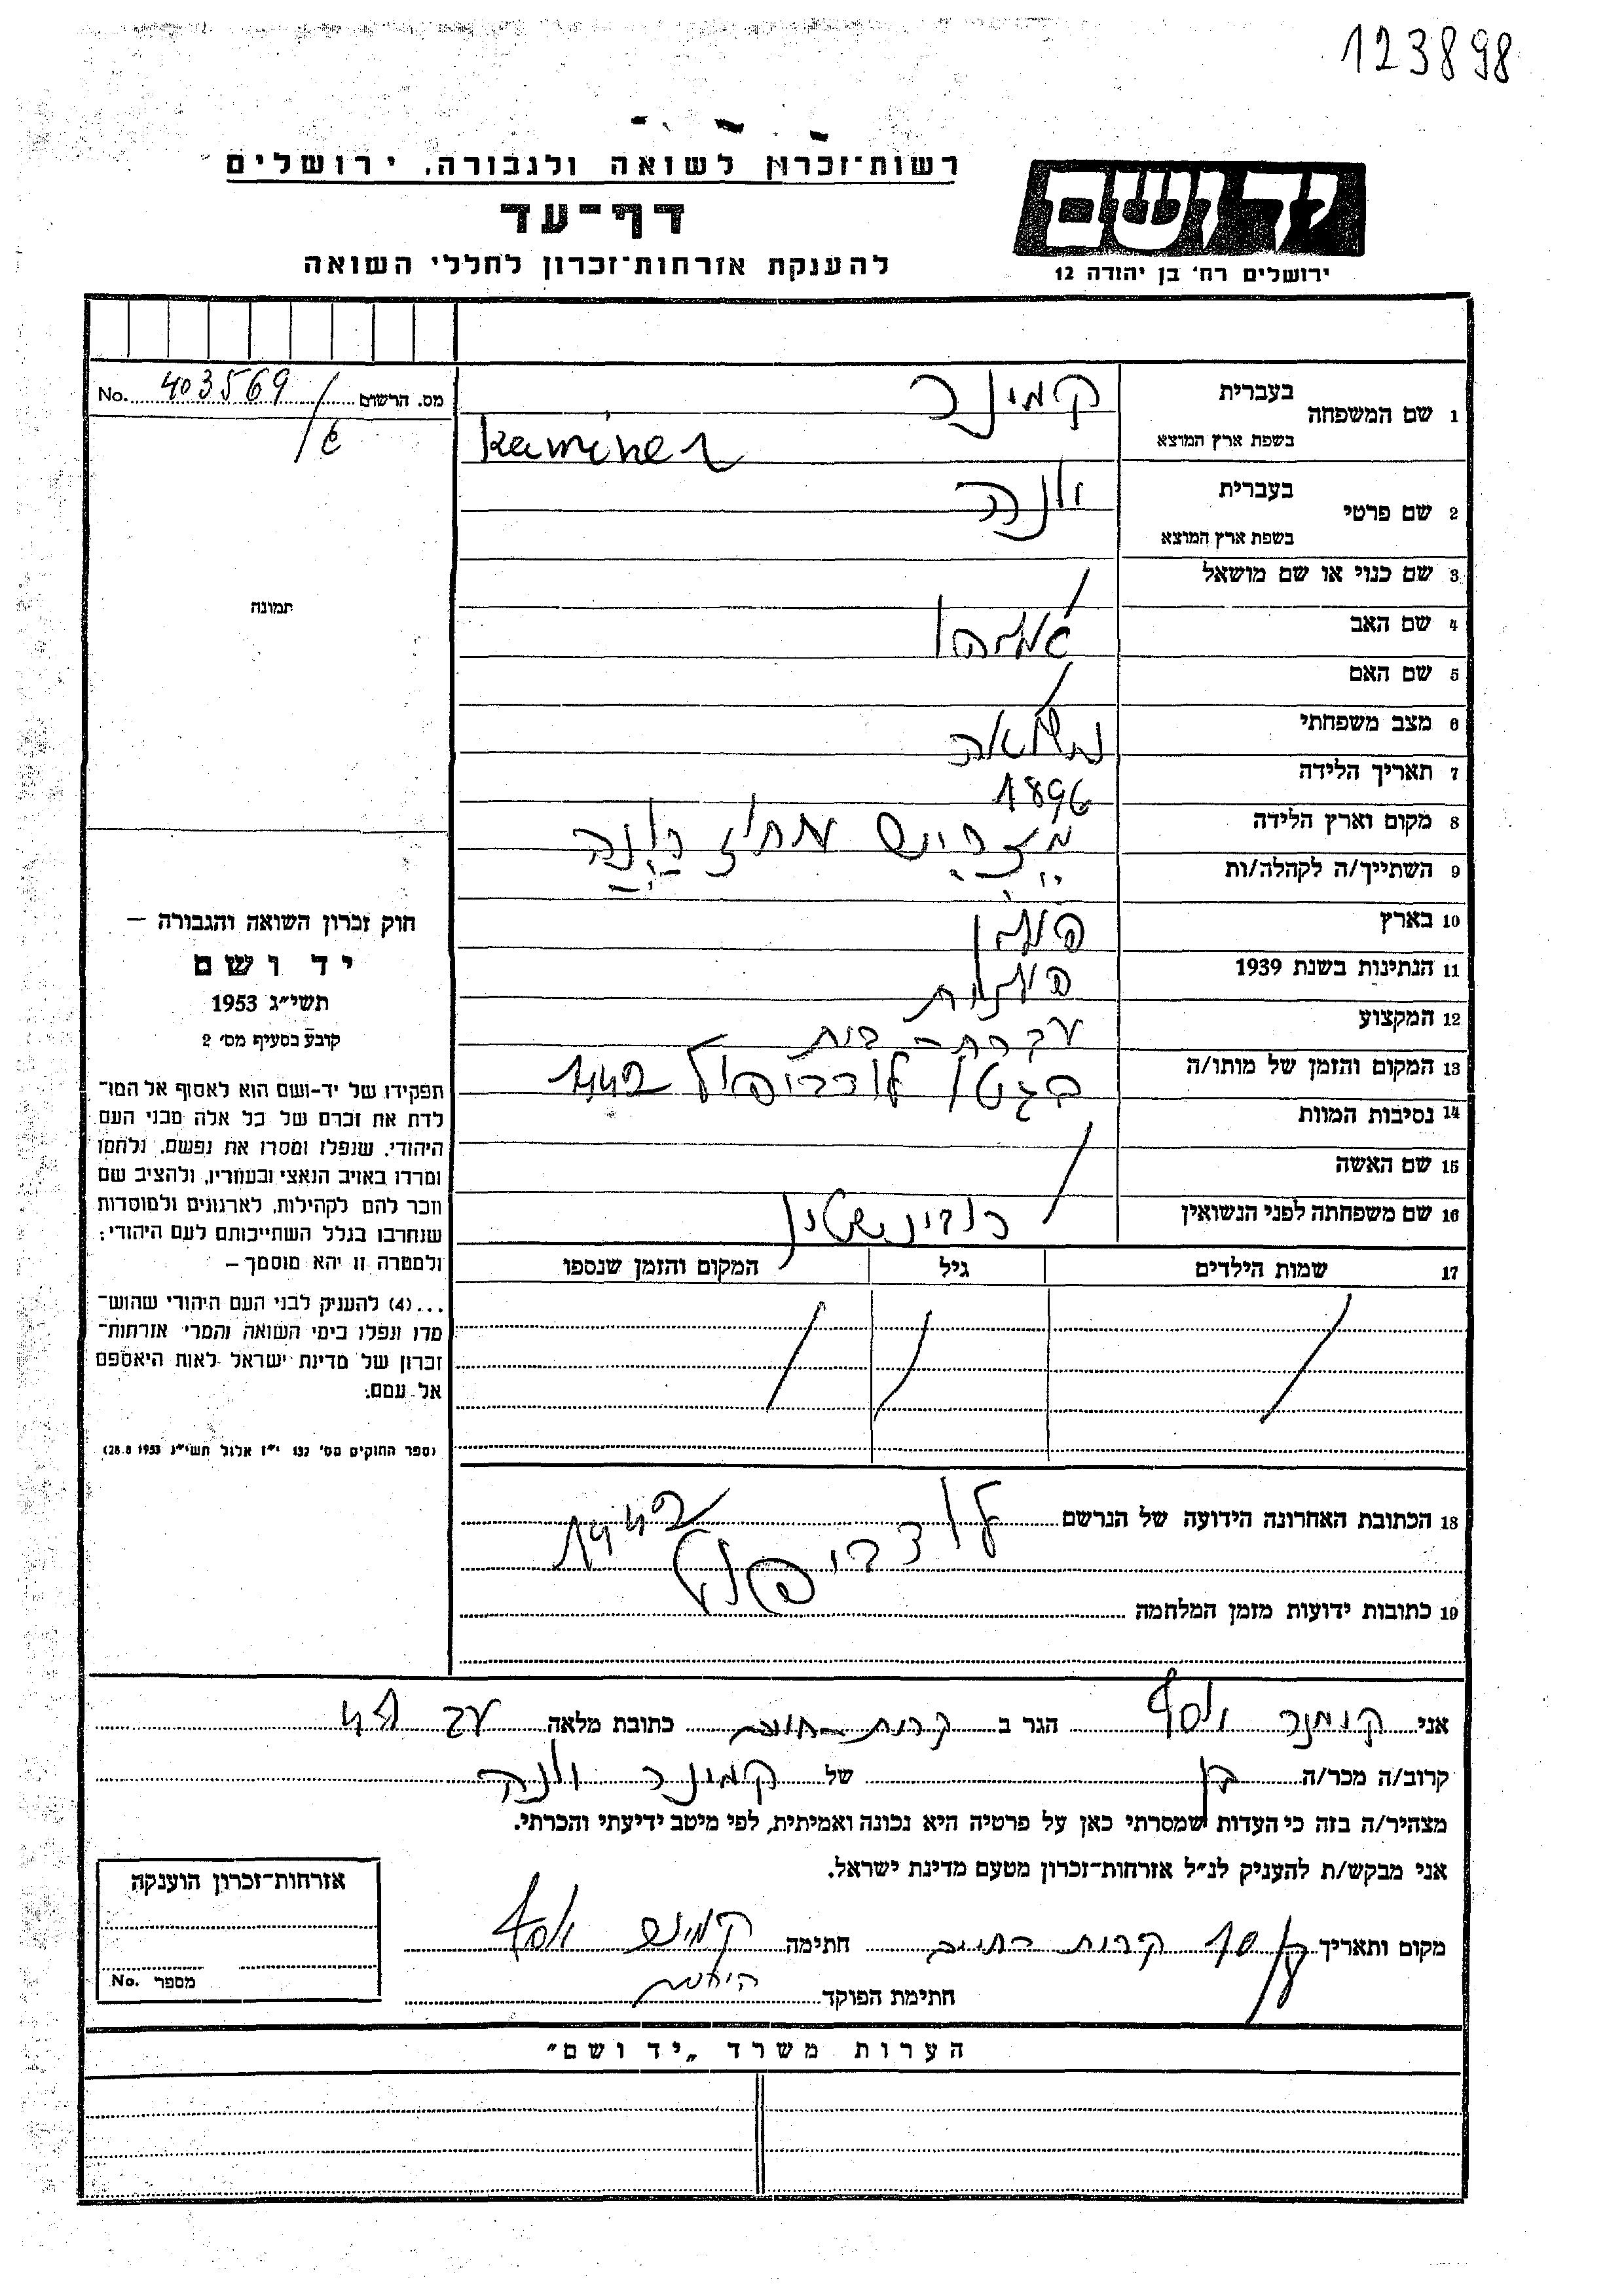 123898
רשות־זכרון לשואה ולגבורה. ירושלים
יד ושם
דף־עד
להענקת אזרחות־זכרון לחללי השואה
ירושלים רח' בן יהודה 12
מס. הרשום 403569 No.
1 שם המשפחה
בעברית קמינר
בשפת ארץ המוצא Kaminer
2 שם פרטי
בעברית
בשפת ארץ המוצא
תמונה
3 שם כנוי או שם מושאל
4 שם האב
5 שם האם
6 מצב משפחתי נשואה
7 תאריך הלידה 1896
8 מקום וארץ הלידה
9 השתייך/ה לקהלה/ות
10 בארץ פולין
11 הנתינות בשנת 1939 פולנית
12 המקצוע עקרת בית
13 המקום והזמן של מותו/ה בגטו לודביפול 1942
14 נסיבות המוות
15 שם האשה
16 שם משפחתה לפני הנשואין
17 שמות הילדים גיל המקום והזמן שנספו
חוק זכרון השואה והגבורה –
יד ושם
תשי״ג 1953
קובע בסעיף מס' 2
תפקידו של יד-ושם הוא לאסוף אל המו־
לדת את זכרם של כל אלה מבני העם
היהודי, שנפלו ומסרו את נפשם, נלחמו
ומרדו באויב הנאצי ובעוזריו, ולהציב שם
וזכר להם לקהילות, לארגונים ולמוסדות
שנחרבו בגלל השתייכותם לעם היהודי:
ולמטרה זו יהא מוסמך –
...(4) להעניק לבני העם היהודי שהוש־
מדו ונפלו בימי השואה והמרי אזרחות־
זכרון של מדינת ישראל לאות היאספם
אל עמם:
(ספר החוקים מס' 132 י״ז אלול תשי״ג 28.8.1953)
18 הכתובת האחרונה הידועה של הנרשם לודביפול 1942
19 כתובות ידועות מזמן המלחמה
אני קמינר יוסף הגר ב קרית כתובת מלאה
קרוב/ה מכר/ה בן של קמינר
מצהיר/ה בזה כי העדות שמסרתי כאן על פרטיה היא נכונה ואמיתית, לפי מיטב ידיעתי והכרתי.
אני מבקש/ת להעניק לנ״ל אזרחות־זכרון מטעם מדינת ישראל.
מקום ותאריך קרית חתימה קמינר יוסף
חתימת הפוקד
אזרחות־זכרון הוענקה
מספר No.
הערות משרד „יד ושם”